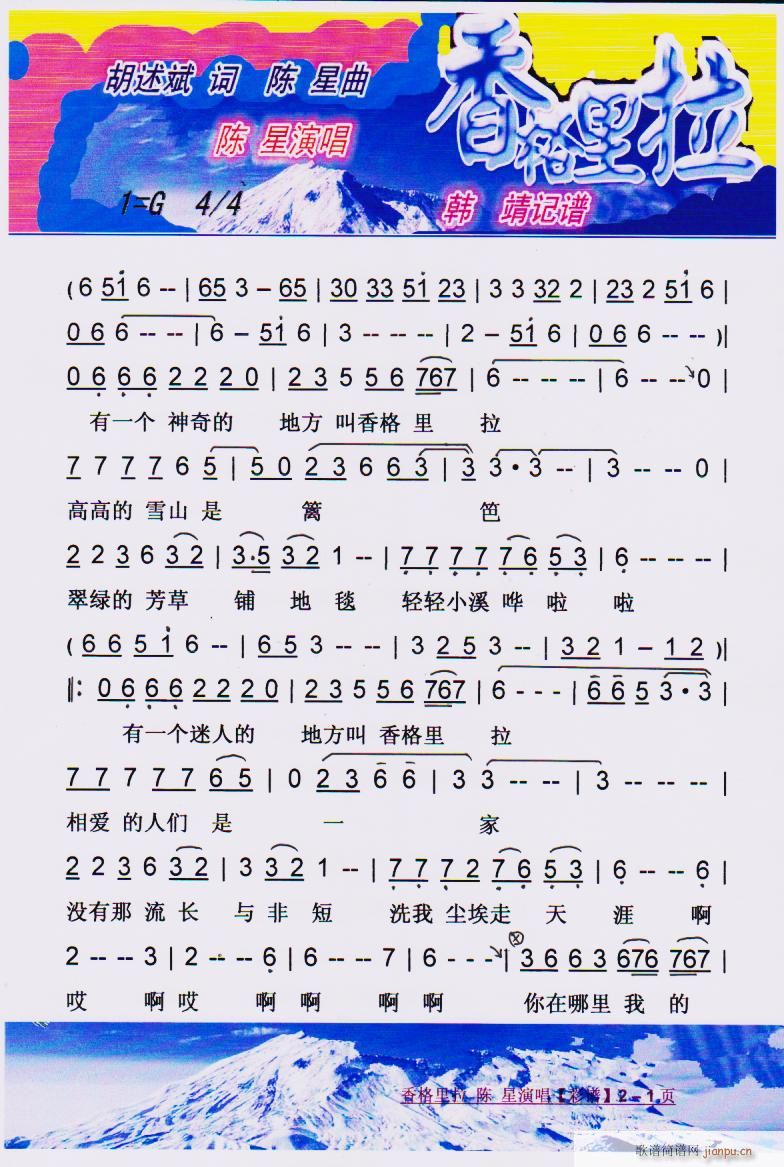 香格里拉
胡述斌 词 陈 星曲
陈 星演唱
1=G 4/4
韩 靖记谱
( 6 51 6 -- | 65 3 – 65 | 30 33 51 23 | 3 3 32 2 | 23 2 51 6 |
0 6 6 -- -- | 6 – 51 6 | 3 -- -- -- | 2 – 51 6 | 0 6 6 -- -- )|
0 6 6 6 2 2 2 0 | 2 3 5 5 6 767 | 6 -- -- -- | 6 -- -- 0 |
有一个 神奇的 地方 叫香格 里 拉
7 7 7 7 6 5 | 5 0 2 3 6 6 3 | 3 3 • 3 -- | 3 -- -- 0
高高的 雪山 是 篱 笆
2 2 3 6 3 2 | 3 • 5 3 2 1 -- | 7 7 7 7 7 6 5 3 | 6 -- -- --
翠绿的 芳草 铺 地 毯 轻轻小溪 哗 啦 啦
( 6 6 5 1 6 -- | 6 5 3 -- -- | 3 2 5 3 -- | 3 2 1 – 1 2 )|
‖: 0 6 6 6 2 2 2 0 | 2 3 5 5 6 767 | 6 - - - | 6 6 5 3 • 3 |
有一个迷人的 地方叫 香格里 拉
7 7 7 7 7 6 5 | 0 2 3 6 6 | 3 3 -- -- | 3 -- -- -- |
相爱 的人们 是 一 家
2 2 3 6 3 2 | 3 3 2 1 -- | 7 7 7 2 7 6 5 3 | 6 -- -- 6
没有那 流 长 与 非 短 洗我 尘埃走 天 涯 啊
2 -- -- 3 | 2 -- -- 6 | 6 -- -- 7 | 6 - - - | 3 6 6 3 676 767 |
哎 啊 哎 啊 啊 啊 啊 你在哪里 我 的
香格里拉 陈 星演唱【彩谱】2－1页
歌谱简谱网 jianpu.cn